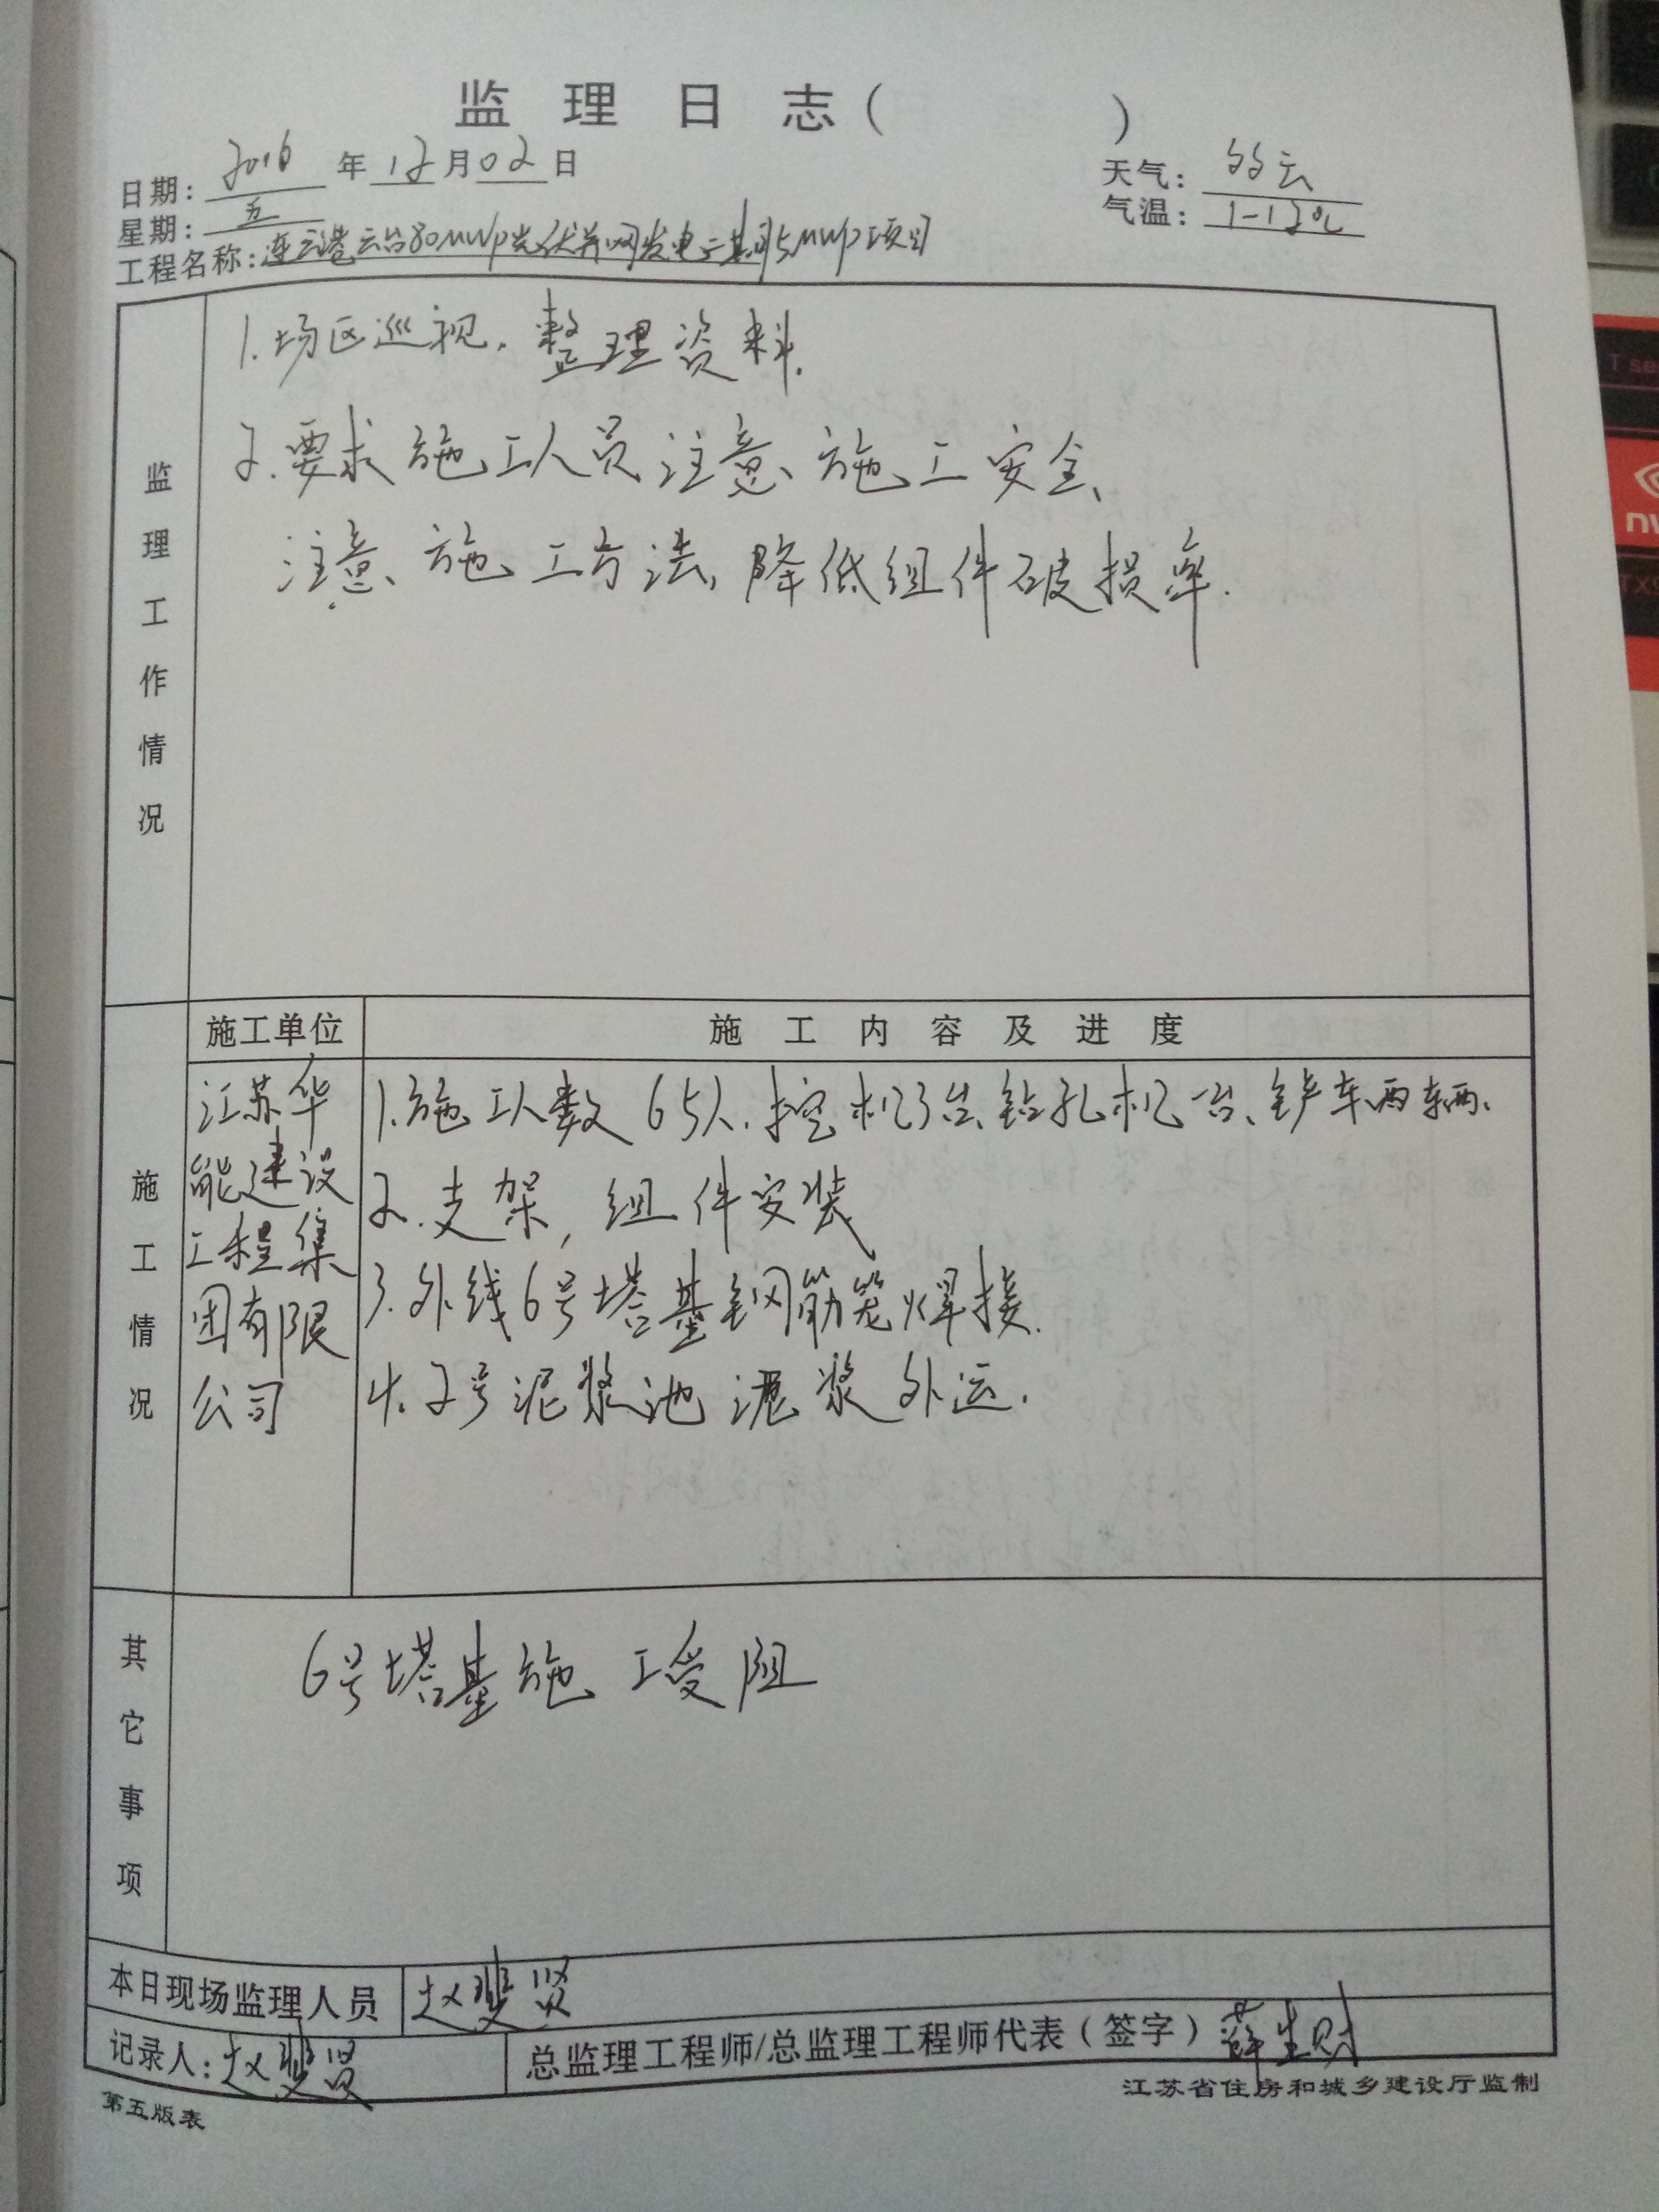 监理日志（ ）
日期：2016年12月02日
天气：多云
星期：五
气温：1-12℃
工程名称：连云港云台80MWp光伏并网发电二期15MWp项目
监理工作情况
1.场区巡视，整理资料.
2.要求施工人员注意施工安全、
注意施工方法，降低组件破损率.
施工情况
施工单位
施工内容及进度
江苏华
能建设
工程集
团有限
公司
1.施工人数65人.挖机3台、钻孔机一台、铲车两辆.
2.支架，组件安装
3.外线6号塔基钢筋笼焊接.
4.2号泥浆池泥浆外运.
其它事项
6号塔基施工受阻
本日现场监理人员 赵斐贤
记录人：赵斐贤
总监理工程师/总监理工程师代表（签字）薛生财
第五版表
江苏省住房和城乡建设厅监制